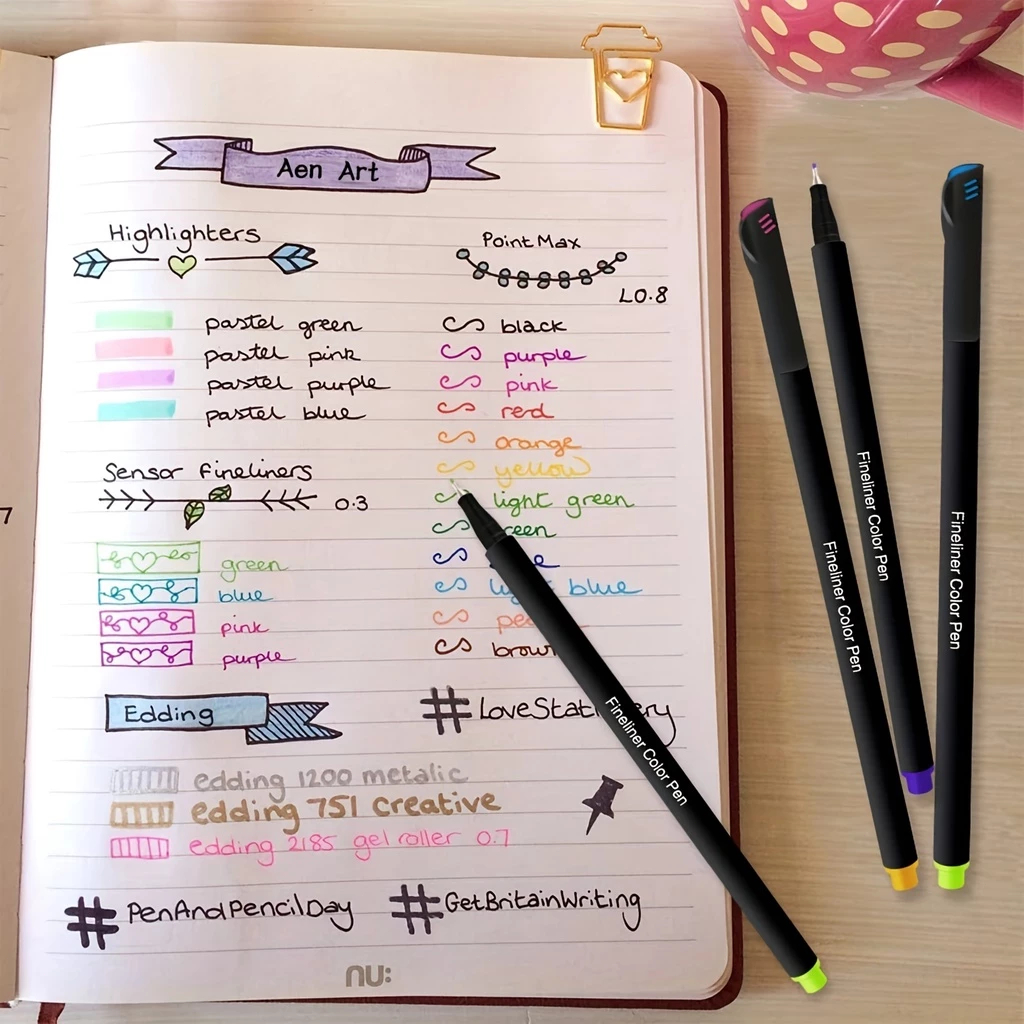 Aen Art
Highlighters
pastel green
pastel pink
pastel purple
pastel blue
PointMax
L0.8
black
purple
pink
red
orange
yellow
light green
blue
brown
Sensor fineliners
0.3
green
blue
pink
purple
Edding
#LoveStat
edding 1200 metalic
edding 751 creative
edding 2185 gel roller 0.7
#PenAndPencilDay
#GetBritainWriting
nu:
7
Fineliner Color Pen
Fineliner Color Pen
Fineliner Color Pen
Fineliner Color Pen